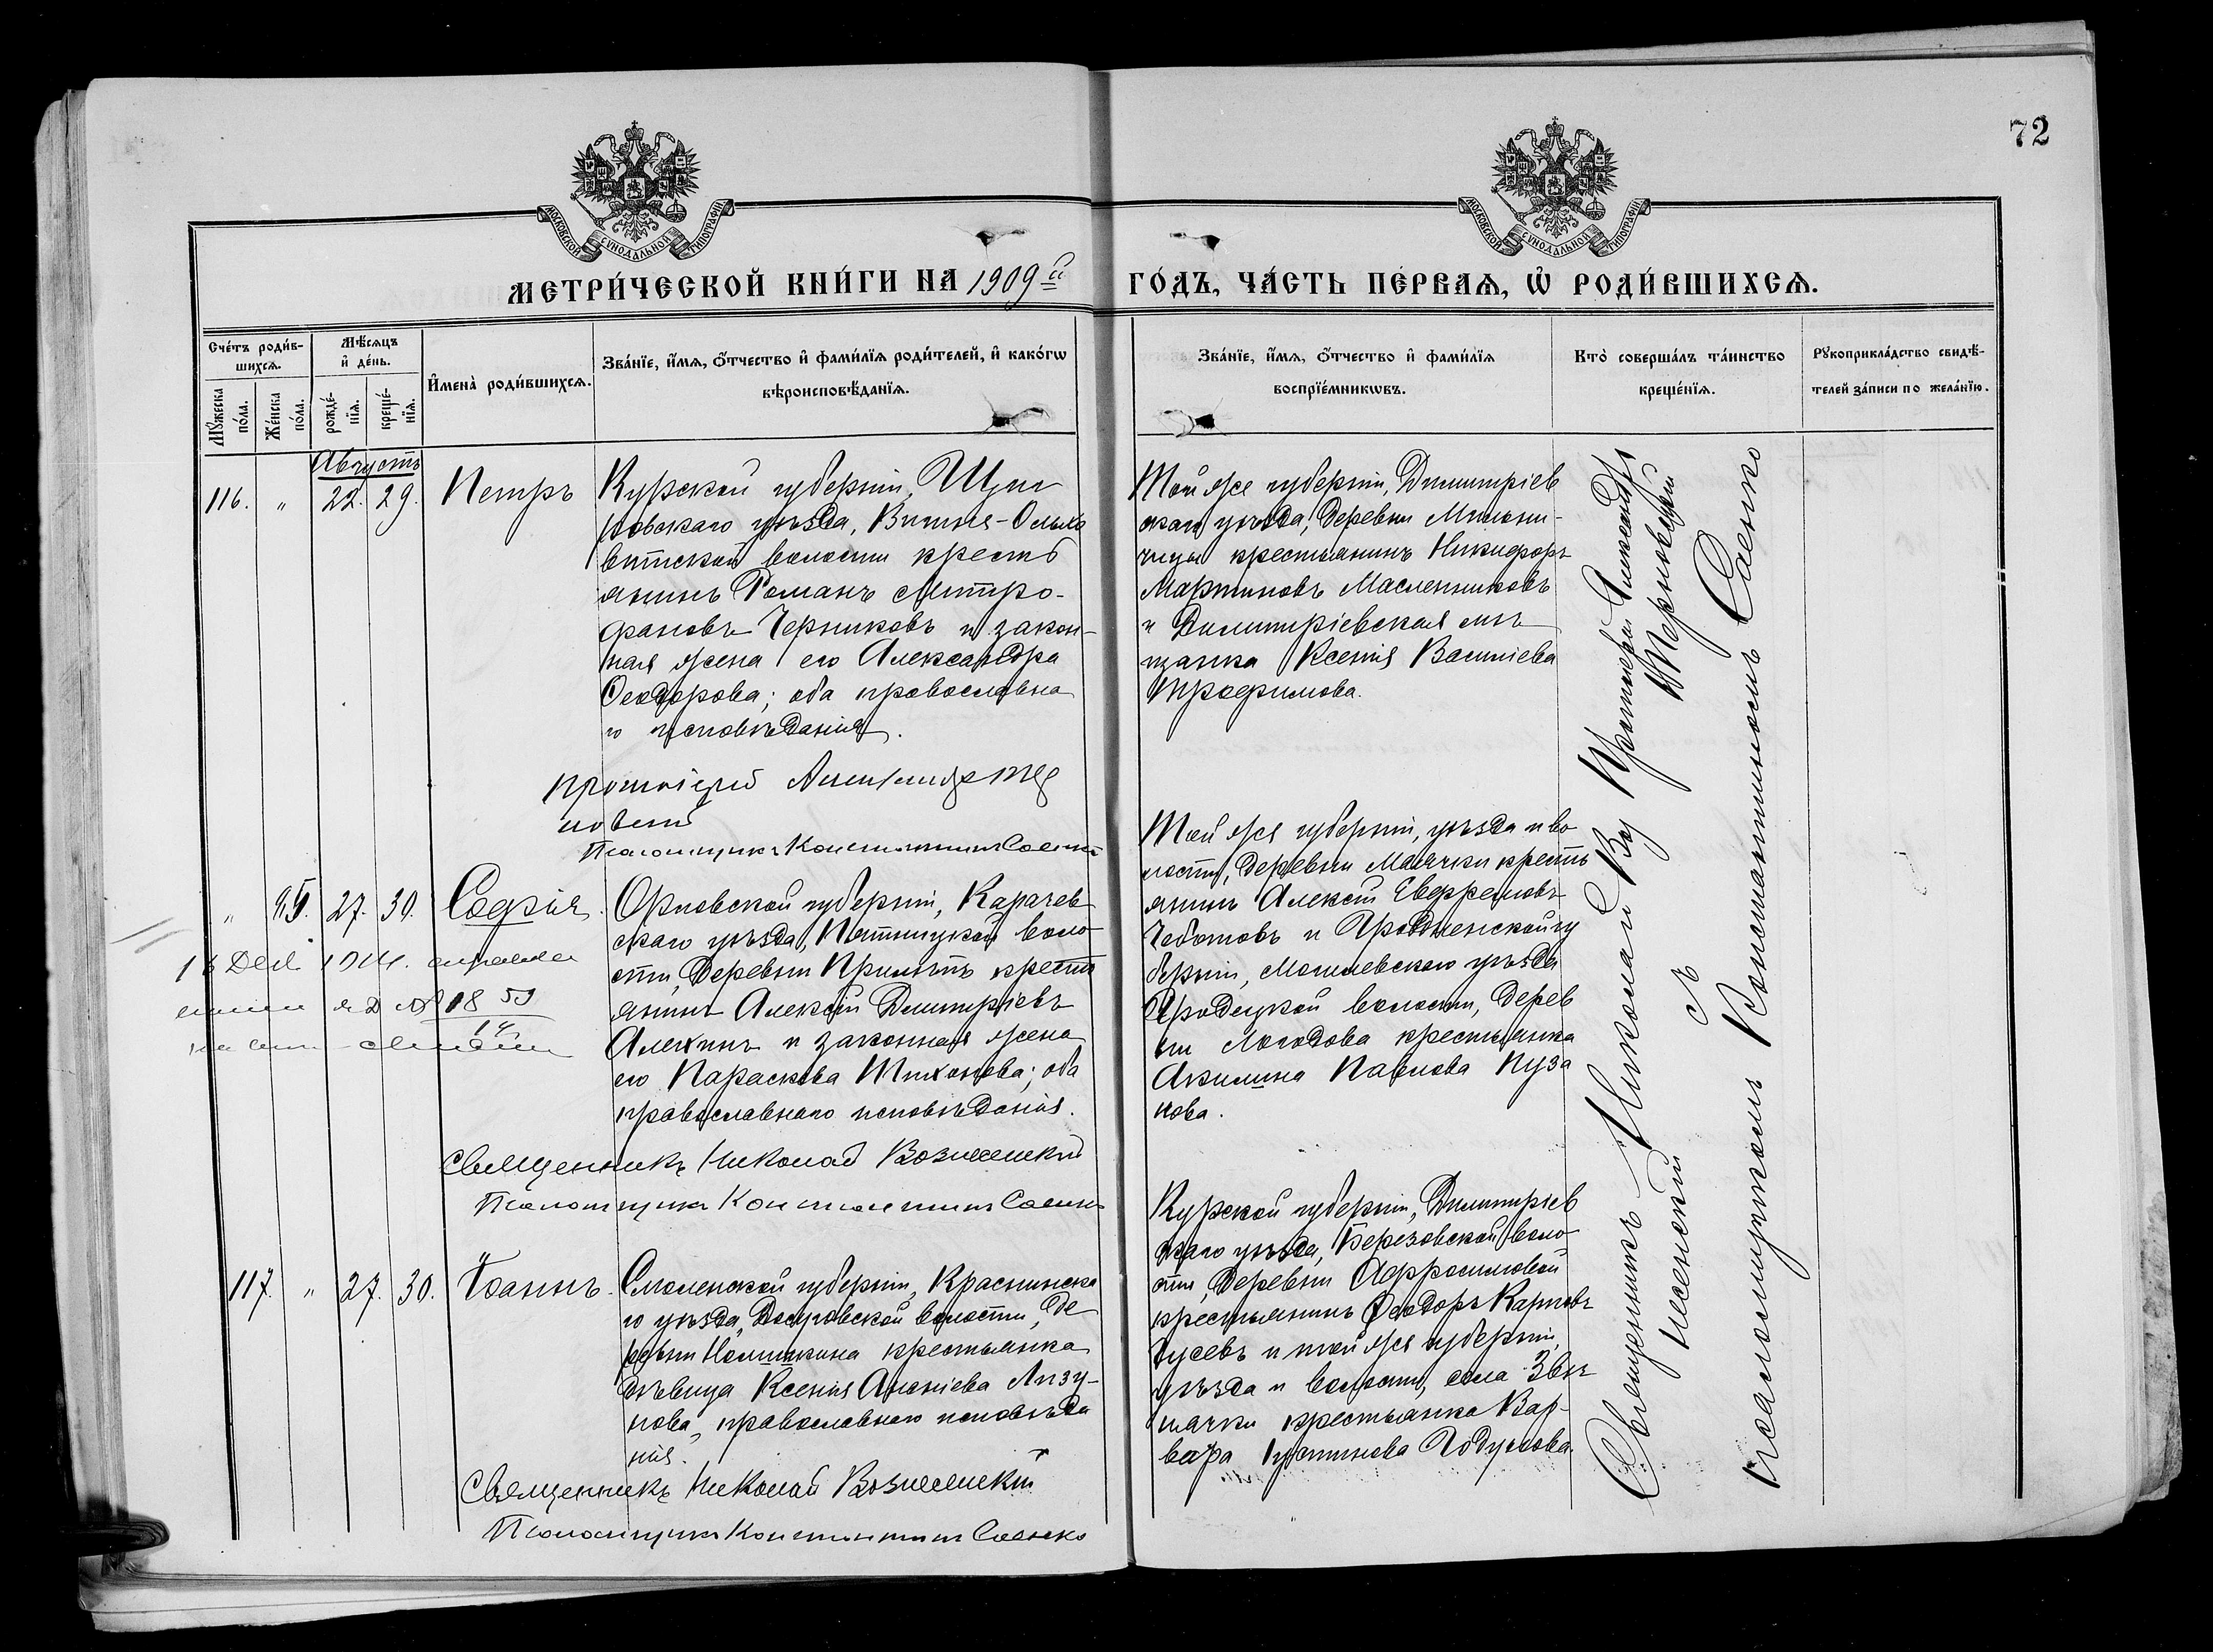 72
МОСКОВСКОЙ СѴНОДАЛЬНОЙ ТИПОГРАФІИ
МОСКОВСКОЙ СѴНОДАЛЬНОЙ ТИПОГРАФІИ
МЕТРИ́ЧЕСКОЙ КНИ́ГИ НА 1909й ГО́ДЪ, ЧА́СТЬ ПЕ́РВАѦ, Ѡ҆ РОДИ́ВШИХСѦ.
Сче́тъ роди́в-
шихсѧ.
Мꙋ́жеска
по́ла.
Же́нска
по́ла.
Мѣ́сѧцъ
и҆ де́нь.
рожде́-
нїѧ.
креще́-
нїѧ.
И҆мена̀ роди́вшихсѧ.
Зва́нїе, и҆́мѧ, ѻ҆́тчество и҆ фами́лїѧ роди́телей, и҆ како́гѡ
вѣроисповѣ́данїѧ.
Зва́нїе, и҆́мѧ, ѻ҆́тчество и҆ фами́лїѧ
воспрїе́мникѡвъ.
Кто̀ соверша́лъ та́инство
креще́нїѧ.
Рꙋкоприкла́дство свидѣ́-
телей за́писи по жела́нїю.
Августъ
116. " 22. 29. Петръ
Курской губерніи, Щиг
ровскаго уѣзда, Вышне-Ольхо
ватской волости кресть
янинъ Романъ Митро-
фановъ Черниковъ и закон-
ная жена его Александра
Ѳеодорова; оба православна
го исповѣданія.
Протоіерей Александр Тер
новскій
Псаломщикъ Константинъ Саенко
Той же губерніи, Димитріев
скаго уѣзда, деревни
крестьянинъ Никифоръ
Мартиновъ Масленниковъ
и Димитріевская мѣ
щанка Ксенія Васильева
Трофимова.
" 95. 27. 30. Софія.
Орловской губерніи, Карачев
скаго уѣзда, волo
сти, деревни кресть
янинъ Алексій Димитріевъ
Алехинъ и законная жена
его Параскева Тихонова; оба
православнаго исповѣданія.
Священникъ Николай Вознесенскій
Псаломщикъ Константинъ Саенко
Той же губерніи, уѣзда и во
лости, деревни Маячки кресть
янинъ Алексій Евфремовъ
Чеботовъ и Гродненской гу
берніи, уѣзда
Городецкой волости, дерев
ни крестьянка
Акилина Павлова Пуза
нова.
117. " 27. 30. Іоаннъ.
Смоленской губерніи, Краснинска
го уѣзда, Досуговской волости, де
ревни крестьянка
дѣвица Ксенія Ананіева Лизу-
нова, православнаго исповѣда
нія.
Священникъ Николай Вознесенскій
Псаломщикъ Константинъ Саенко
Курской губерніи, Димитріев
скаго уѣзда, Березовской воло
сти, деревни Афросимовой
крестьянинъ Ѳеодоръ Карповъ
Гусевъ и той же губерніи,
уѣзда и волости, села Звѣ
нячки крестьянка Вар-
вара Іустинова
Протоіерей Александръ
Терновскій
Священникъ Николай Воз
несенскій съ
псаломщикомъ Константиномъ Саенко